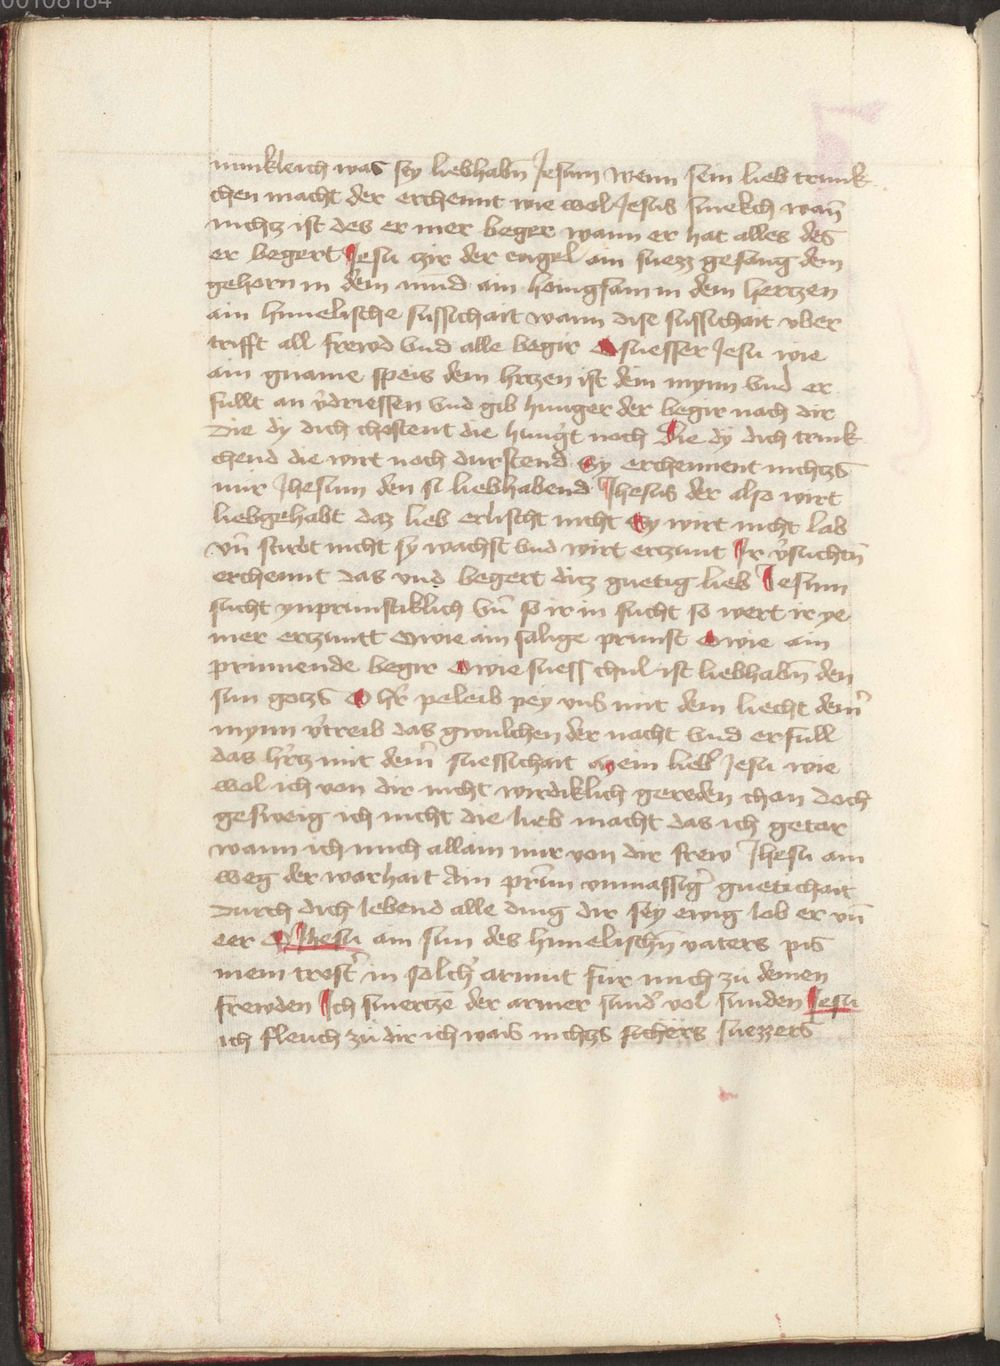 00108184
mmkleich was sey liebhabn̄ Jesum wenn sein lieb trunk
chen macht der erchennt wie wol Jesus smekch wan̄
nichtz ist des er mer beger wann er hat alles des
er begert Jesu tzir der engel ain suezz gesang dem
gehorn in dem mund ain honigsam in dem hertzen
ain himelische sussichait wann dise sussichait vber
trifft all frewd vnd alle begir O suesser Jesu wie
ain gname speis dem hrtzen ist dein mynn vnd er
fullt an v̓driessen vnd gib hunger der begir nach dir
Die dy dich chostent die hung̓t noch Die dy dich trink
chend die wirt noch durstend Sy erchennent nichtzs
nur Jhesum den si liebhabend Jhesus der also wirt
liebgehabt daz lieb erlischt nicht Sy wirt nicht lab
vn̄ stirbt nicht sy wachst vnd wirt ertzunt Ir v̓suchtn̄
erchennt das vnd begert ditz guetig lieb Jesum
sucht ynprunstiklich vn̄ so ir in sucht so wert ir ye
mer ertzuntt O wie ain salige prunst O wie ain
prinnende begir O wie suess chul ist liebhabn̄ den
sun gotzs O hr̓ peleib pey vns mit dem liecht dein̓
mynn v̓treib das gwulchen der nacht vnd erfull
das hr̓tz mit dein̓ suessichait Mein lieb Jesu wie
wol ich von dir nicht wirdiklich gereden chan doch
gesweig ich nicht die lieb macht das ich getar
wann ich mich allain nur von dir frew Jhesu ain
weg der warhait Ain prun̄ vnmassig̓ guetichait
Durch dich lebend alle ding dir sey ewig lob er vn̄
eer O Jhesu ain sun des himelischn̄ vaters pis
mein trost̓ in solch̓ armut fur mich zu deinen
frewden Ich smertze der armer sund̓ vol sunden Jesu
ich fleuch zu dir ich wais nichtzs sichers suezzers